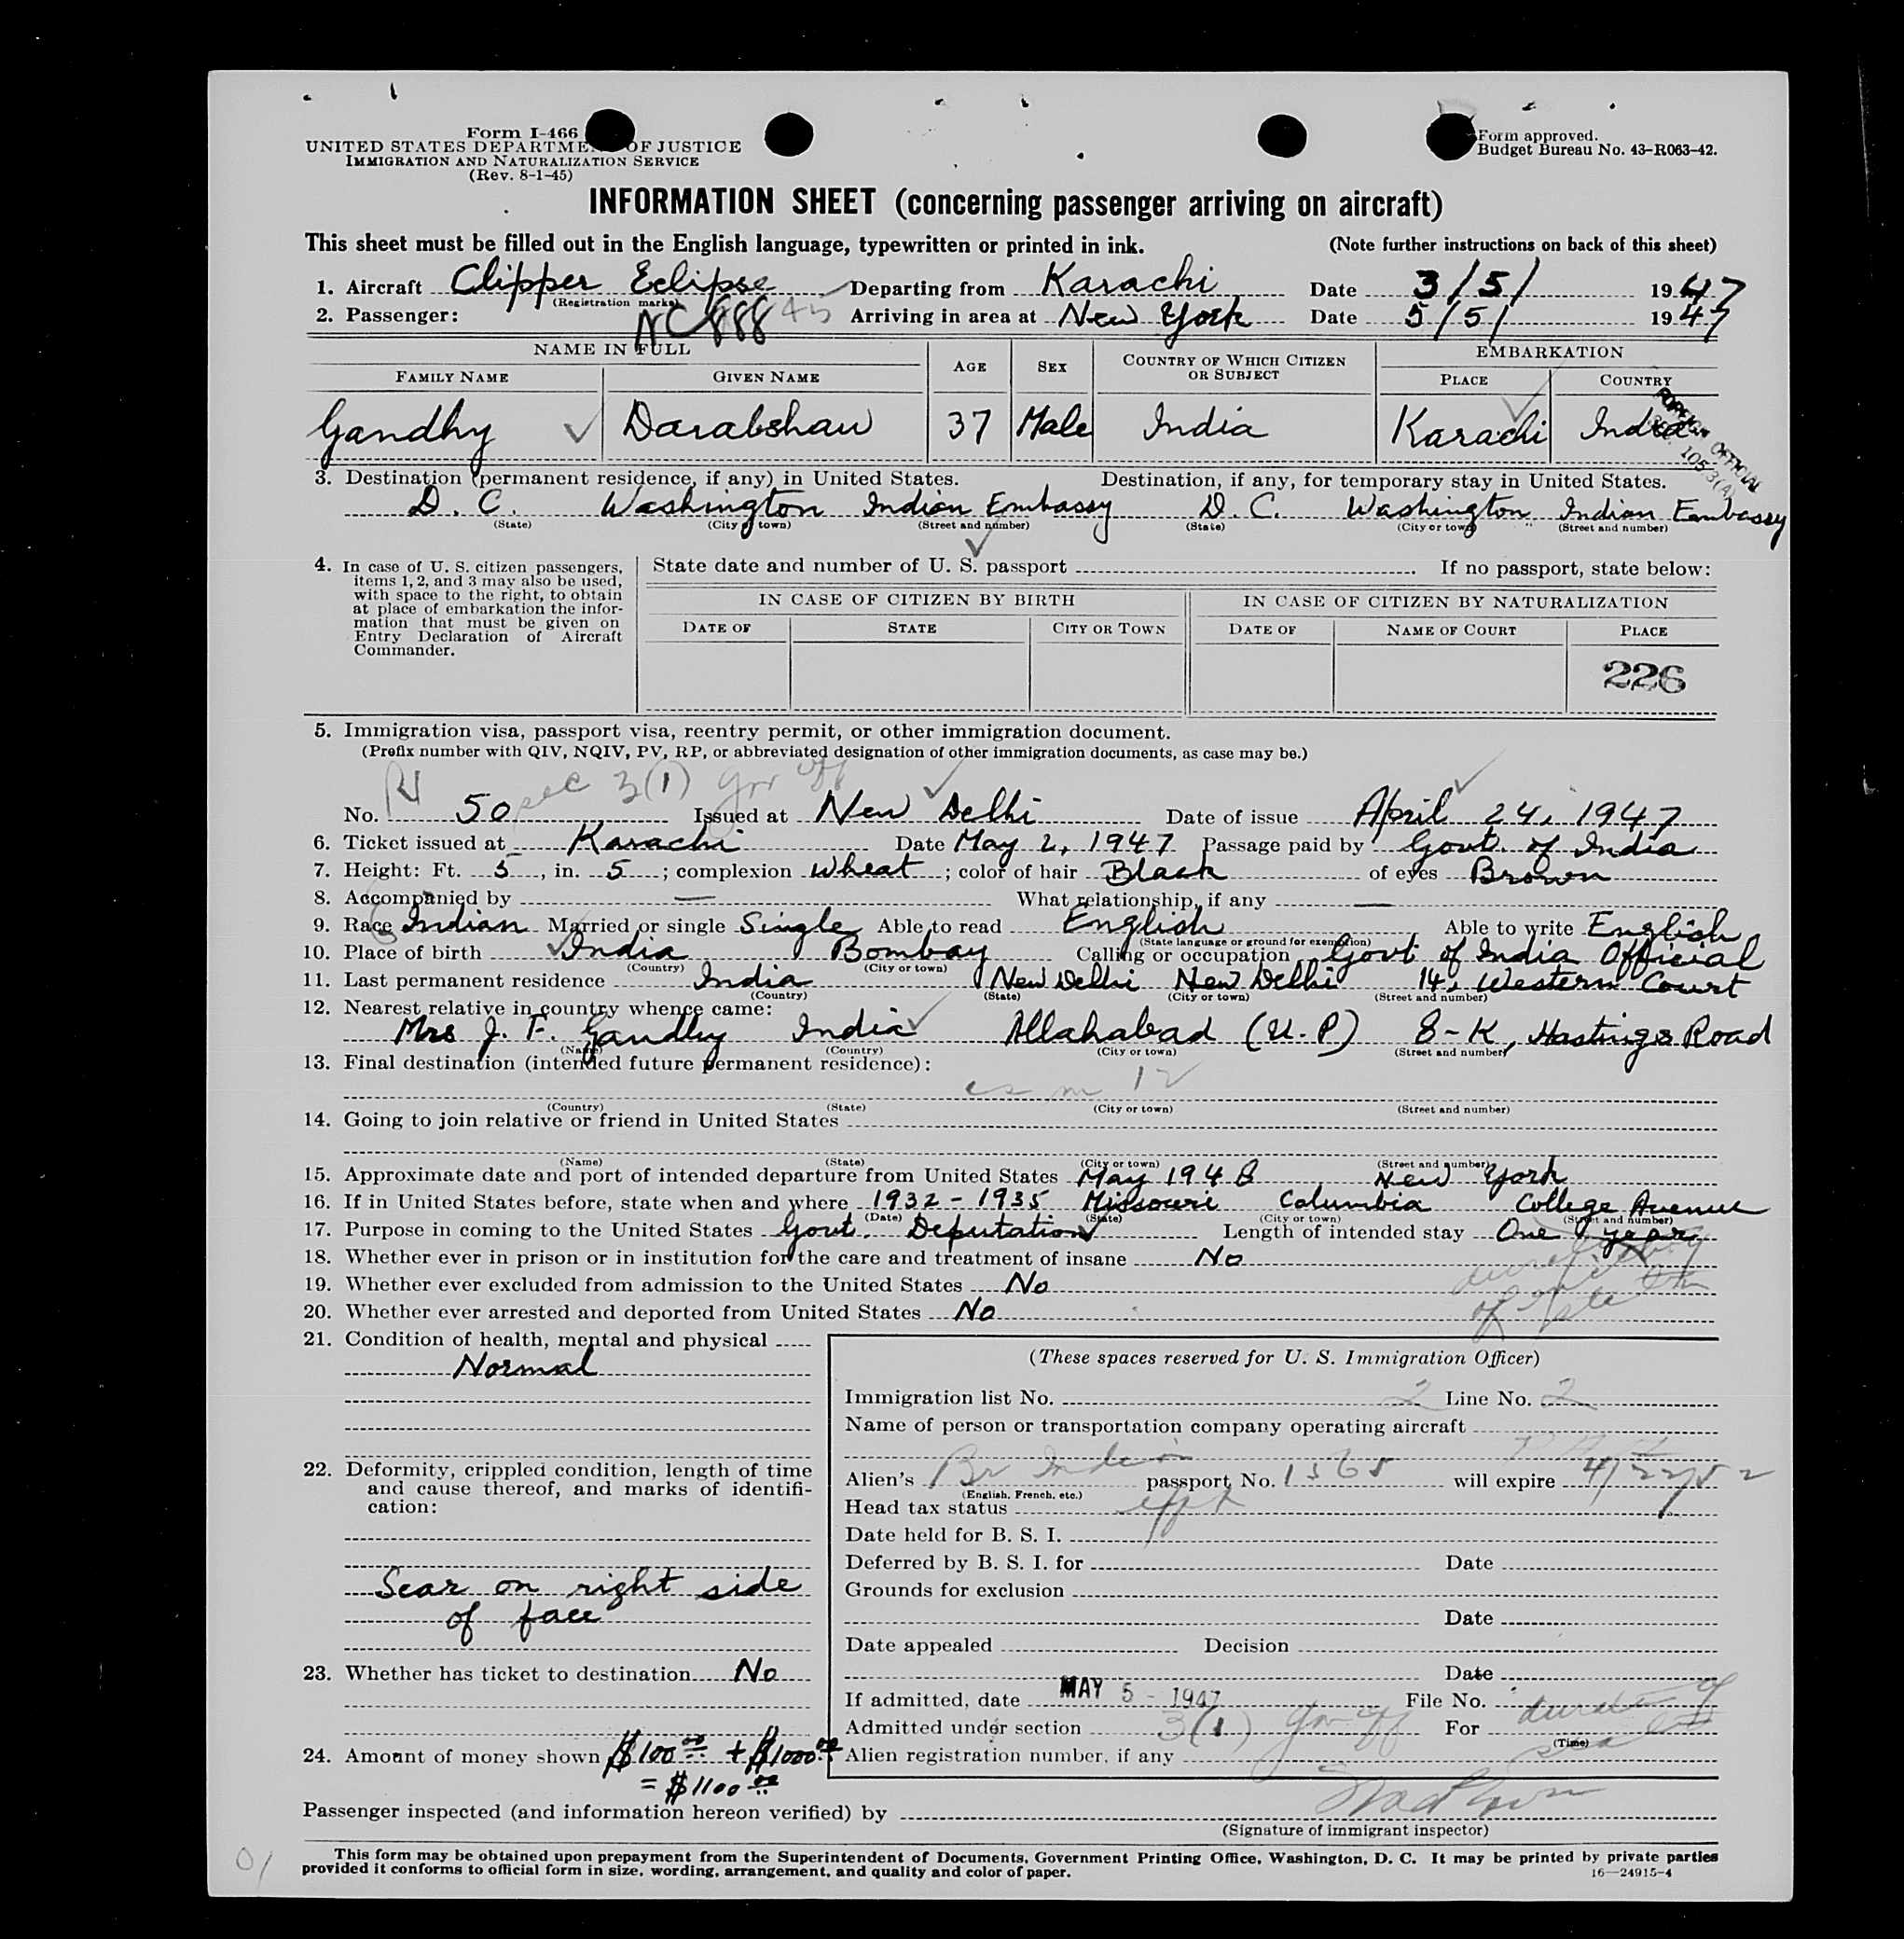 Form I-466
UNITED STATES DEPARTMENT OF JUSTICE
IMMIGRATION AND NATURALIZATION SERVICE
(Rev. 8-1-45)
Form approved.
Budget Bureau No. 43-R063-42.
INFORMATION SHEET (concerning passenger arriving on aircraft)
This sheet must be filled out in the English language, typewritten or printed in ink. (Note further instructions on back of this sheet)
1. Aircraft Clipper Eclipse Departing from Karachi Date 3/5/ 1947
(Registration marks)
2. Passenger: NC 88845 Arriving in area at New York Date 5/5/ 1947
NAME IN FULL AGE SEX COUNTRY OF WHICH CITIZEN OR SUBJECT EMBARKATION
FAMILY NAME GIVEN NAME PLACE COUNTRY
Gandhy Darabshaw 37 Male India Karachi India
FOREIGN OFFICIAL
SEC. 105.3(A)
3. Destination (permanent residence, if any) in United States. Destination, if any, for temporary stay in United States.
D. C. Washington Indian Embassy D. C. Washington Indian Embassy
(State) (City or town) (Street and number) (State) (City or town) (Street and number)
4. In case of U. S. citizen passengers, items 1, 2, and 3 may also be used, with space to the right, to obtain at place of embarkation the information that must be given on Entry Declaration of Aircraft Commander.
State date and number of U. S. passport If no passport, state below:
IN CASE OF CITIZEN BY BIRTH IN CASE OF CITIZEN BY NATURALIZATION
DATE OF STATE CITY OR TOWN DATE OF NAME OF COURT PLACE
226
5. Immigration visa, passport visa, reentry permit, or other immigration document.
(Prefix number with QIV, NQIV, PV, RP, or abbreviated designation of other immigration documents, as case may be.)
sec 3(1) gov off
No. 50 Issued at New Delhi Date of issue April 24, 1947
6. Ticket issued at Karachi Date May 2, 1947 Passage paid by Govt. of India
7. Height: Ft. 5, in. 5; complexion Wheat; color of hair Black of eyes Brown
8. Accompanied by — What relationship, if any —
9. Race Indian Married or single Single Able to read English Able to write English
(State language or ground for exemption)
10. Place of birth India Bombay Calling or occupation Govt of India Official
(Country) (City or town)
11. Last permanent residence India New Delhi New Delhi 14, Western Court
(Country) (State) (City or town) (Street and number)
12. Nearest relative in country whence came:
Mrs J. F. Gandhy India Allahabad (U.P) 8-K, Hastings Road
(Name) (Country) (City or town) (Street and number)
13. Final destination (intended future permanent residence):
12
(Country) (State) (City or town) (Street and number)
14. Going to join relative or friend in United States
(Name) (State) (City or town) (Street and number)
15. Approximate date and port of intended departure from United States May 1948 New York
16. If in United States before, state when and where 1932-1935 Missouri Columbia College Avenue
(Date) (State) (City or town) (Street and number)
17. Purpose in coming to the United States Govt. Deputation Length of intended stay One year
18. Whether ever in prison or in institution for the care and treatment of insane No
19. Whether ever excluded from admission to the United States No
20. Whether ever arrested and deported from United States No
21. Condition of health, mental and physical
Normal
22. Deformity, crippled condition, length of time and cause thereof, and marks of identification:
Scar on right side
of face
23. Whether has ticket to destination No
24. Amount of money shown $100.00 + $1000.00
= $1100.00
(These spaces reserved for U. S. Immigration Officer)
Immigration list No. 2 Line No. 2
Name of person or transportation company operating aircraft
Alien's Br Indian passport No. 1565 will expire 4/22/52
(English, French, etc.)
Head tax status
Date held for B. S. I.
Deferred by B. S. I. for Date
Grounds for exclusion
Date
Date appealed Decision
Date
If admitted, date MAY 5 - 1947 File No.
Admitted under section 3(1) gov off For
(Time)
Alien registration number, if any
Passenger inspected (and information hereon verified) by
(Signature of immigrant inspector)
This form may be obtained upon prepayment from the Superintendent of Documents, Government Printing Office, Washington, D. C. It may be printed by private parties
provided it conforms to official form in size, wording, arrangement, and quality and color of paper. 16—24915-4